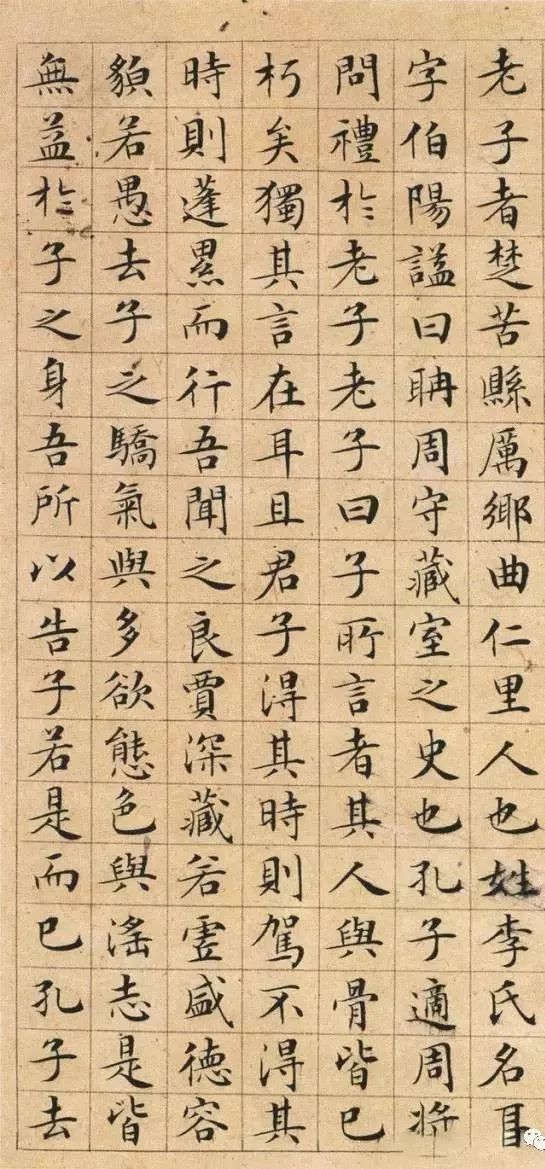 老子者楚苦縣厲鄉曲仁里人也姓李氏名耳
字伯陽謚曰聃周守藏室之史也孔子適周將
問禮於老子老子曰子所言者其人與骨皆已
朽矣獨其言在耳且君子得其時則駕不得其
時則蓬累而行吾聞之良賈深藏若虛盛德容
貌若愚去子之驕氣與多欲態色與淫志是皆
無益於子之身吾所以告子若是而已孔子去